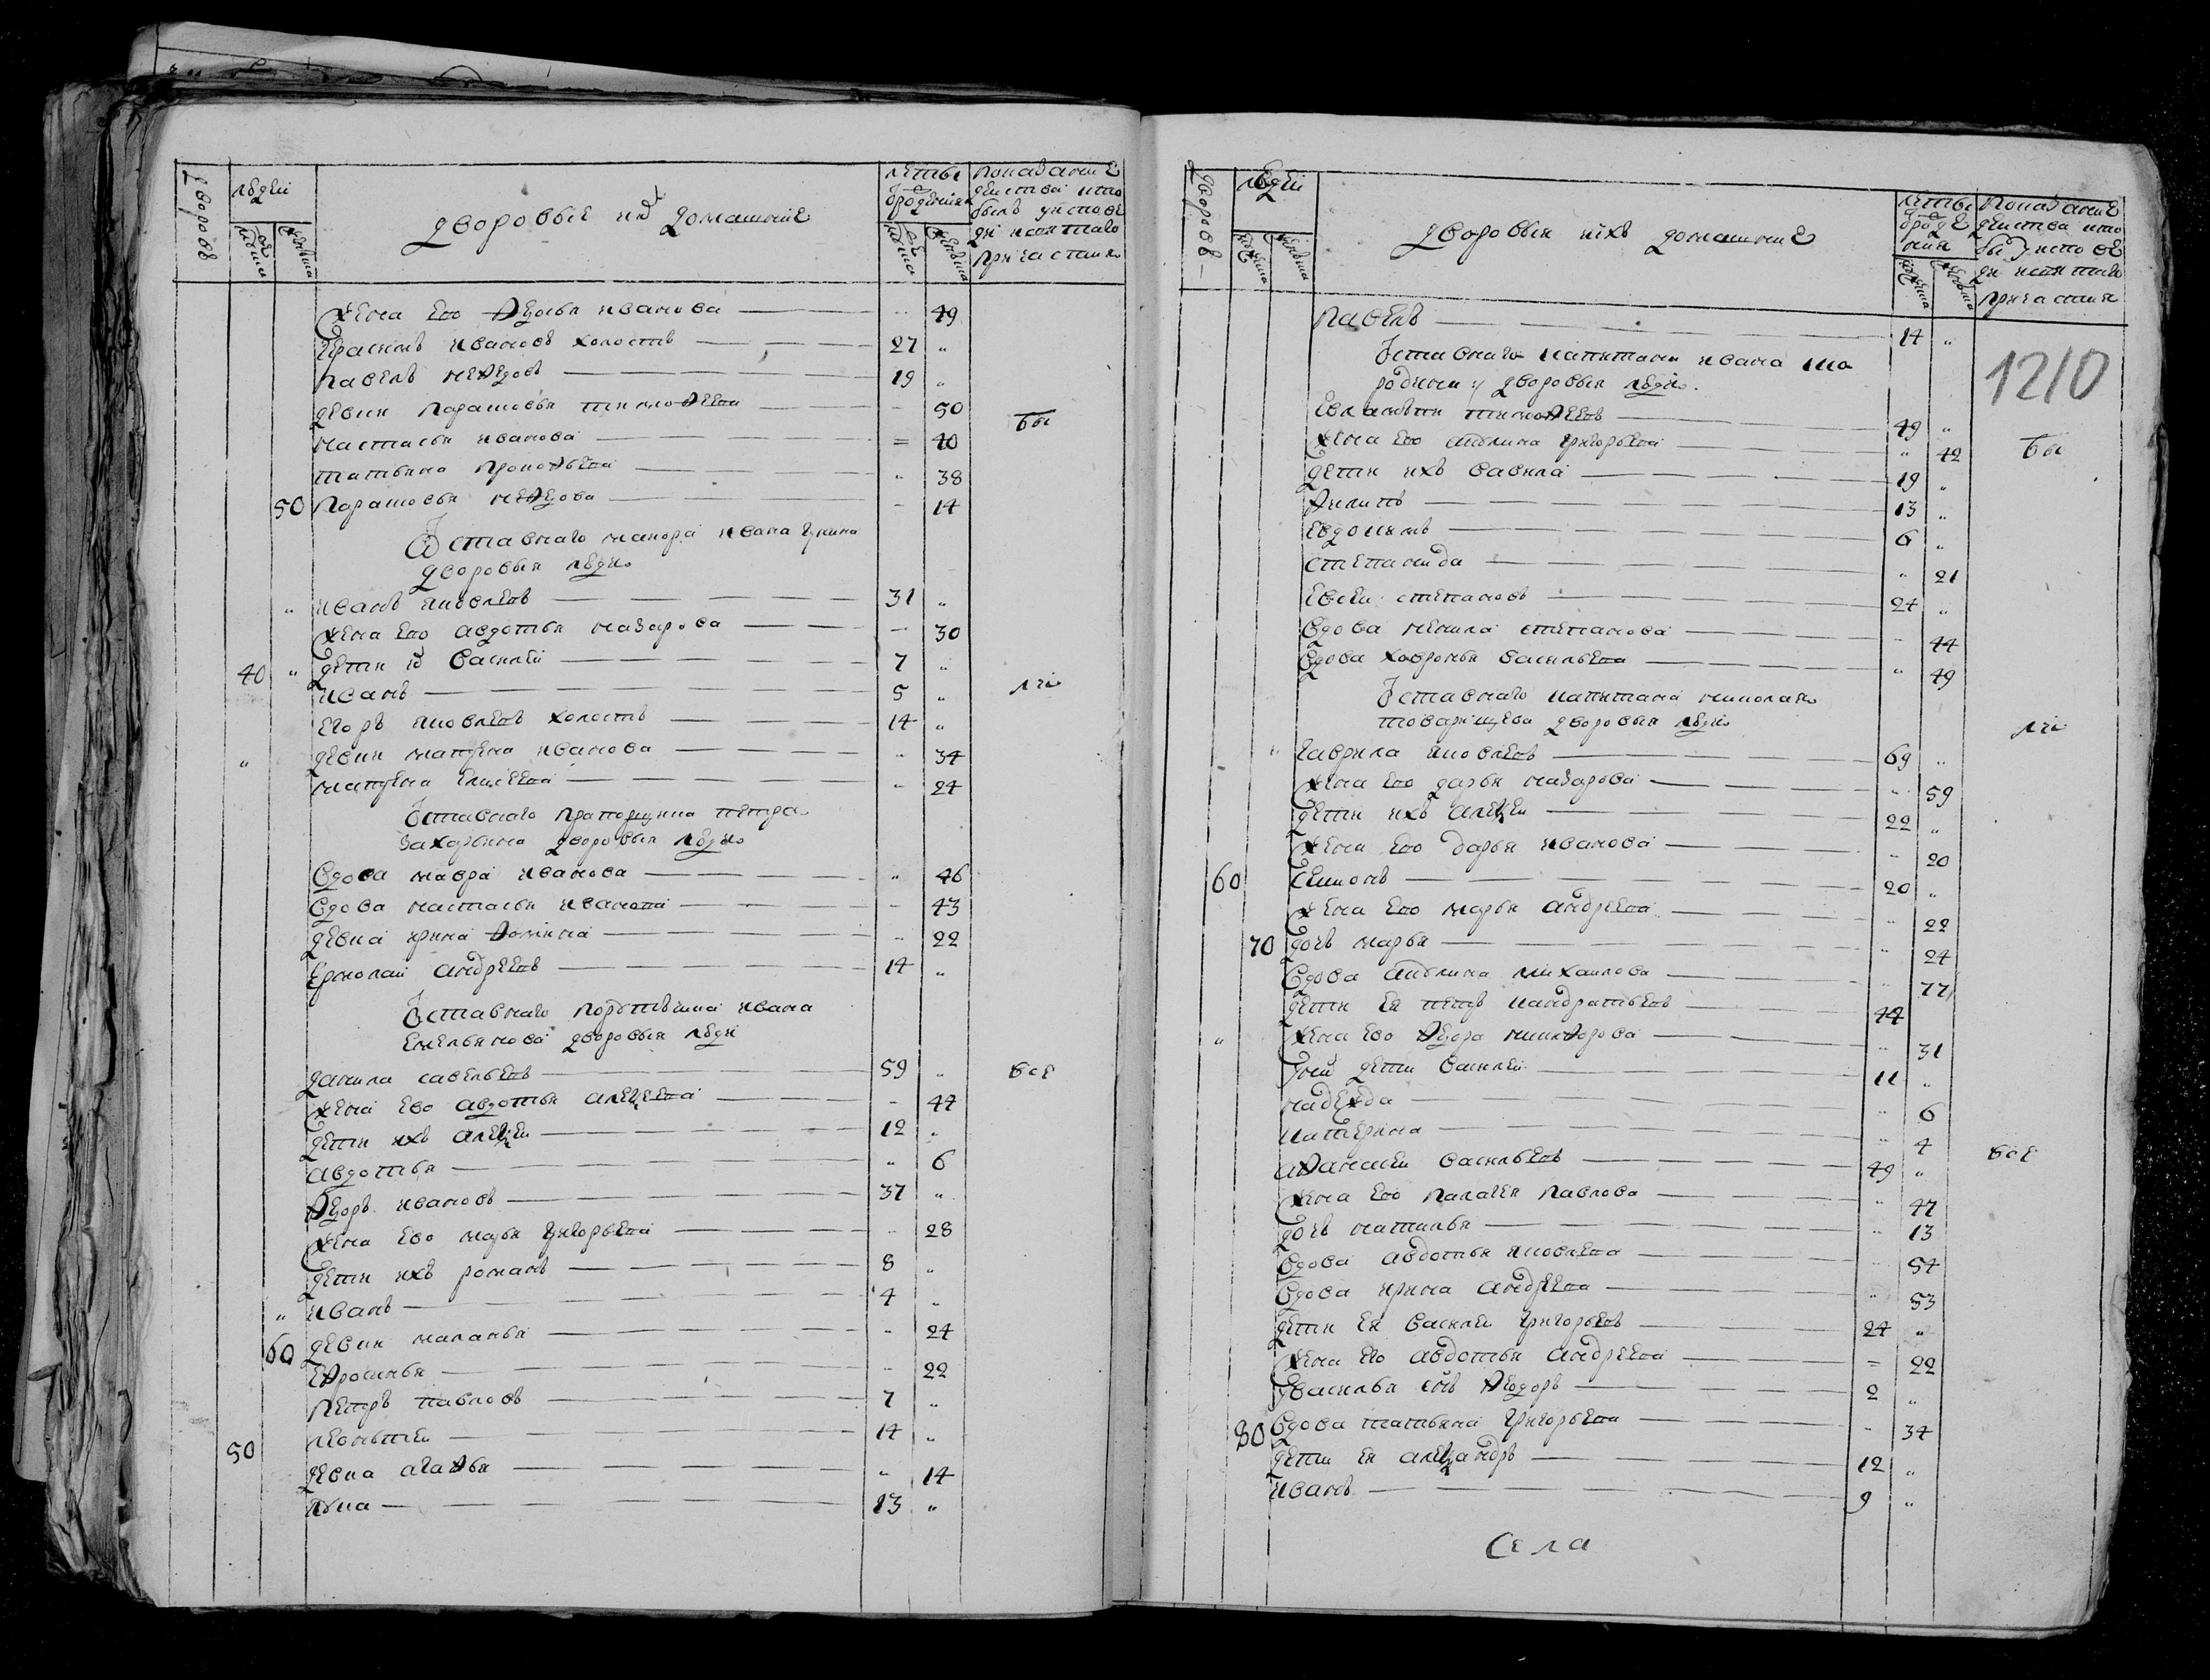 дворовъ
людей
мужеска
женска
дворовые и их домашние
лѣты
ѿ рождения
мужеска
женска
Показание
действа кто
былъ у испове
ди и святаго
причастия
жена его Федосья иванова 49
Герасимъ ивановъ холостъ 27
павелъ нефедовъ 19
девки парасковья тимофеева 50
настасья иванова 40
татьяна прокофьева 38
50 парасковья нефедова 14
бы
Ѿставнаго маиора ивана
дворовыя люди
иванъ яковлевъ 31
жена его авдотья назарова 30
40 дети их василеи 7
иванъ 5
егоръ яковлевъ холостъ 14
девки матрена иванова 34
матрена елисеева 24
ли
Ѿставнаго прапорщика петра
захарьина дворовыя люди
вдова мавра иванова 46
вдова настасья иванова 43
девка ирина фомина 22
ермолаи андреевъ 14
Ѿставнаго порутчика ивана
емельянова дворовыя люди
данила савельевъ 59
жена ево авдотья алеѯеева 44
дети ихъ алеѯеи 12
авдотья 6
Федоръ ивановъ 37
жена ево марья григорьева 28
дети ихъ романъ 8
иванъ 4
60 девки маланья 24
ефросинья 22
петръ павловъ 7
50 леонтеи 14
девка агафья 14
лука 13
все
дворовъ
людей
мужеска
женска
дворовыя ихъ домашние
лѣты
ѿ рожде
ния
мужеска
женска
Показание
действа кто
бы у испове
ди и святаго
причастия
1210
павелъ 14
Ѿставнаго капитана ивана ша
родина дворовыя люди
евлампи тимофеевъ 49
жена его акулина григорьева 42
дети ихъ вавила 19
Филипъ 13
евдокимъ 6
степанида 21
евсеи степановъ 24
вдова ненила степанова 44
вдова хавронья васильева 49
бы
Ѿставнаго капитана николая
товарищева дворовыя люди
гаврила яковлевъ 69
жена его дарья назарова 59
дети ихъ алеѯеи 22
жена ево дарья иванова 20
60 семионъ 20
жена ево марья андреева 22
70 дочь марья 24
вдова акулина михаилова 77
дети ея петръ кандратьевъ 44
жена ево Федора никифорова 31
у ний дети василеи 11
надежда 6
катерина 4
афанасеи васильевъ 49
жена ево палагея павлова 47
дочь наталья 13
вдова авдотья яковлева 54
вдова ирина андреева 53
дети ея василеи григорьевъ 24
жена его авдотья андреева 22
у василья сынъ Феодоръ 2
80 вдова татьяна григорьева 34
дети ея алеѯандръ 12
иванъ 9
ли
все
села